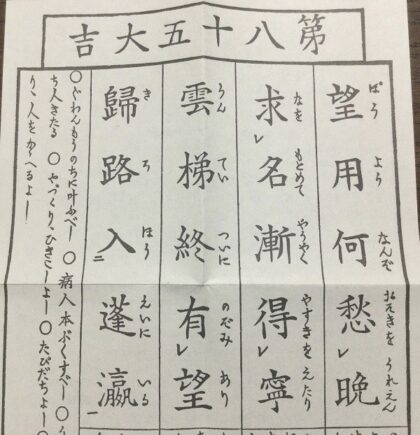 第八十五大吉
望用何愁レ晩
ばう よう なんぞ おそきを うれえん
求レ名漸得レ寧
なを もとめて やうやく やすきを えたり
雲梯終有レ望
うん てい ついに のぞみ あり
歸路入二蓬瀛一
き ろ ほう えいに いる
○ぐわんもうのちに叶ふべし ○病人本ぶくすべし ○う
ち人きたる ○やづくり、ひきこしよし ○たびだちよし ○
り、人をかゝへるよし